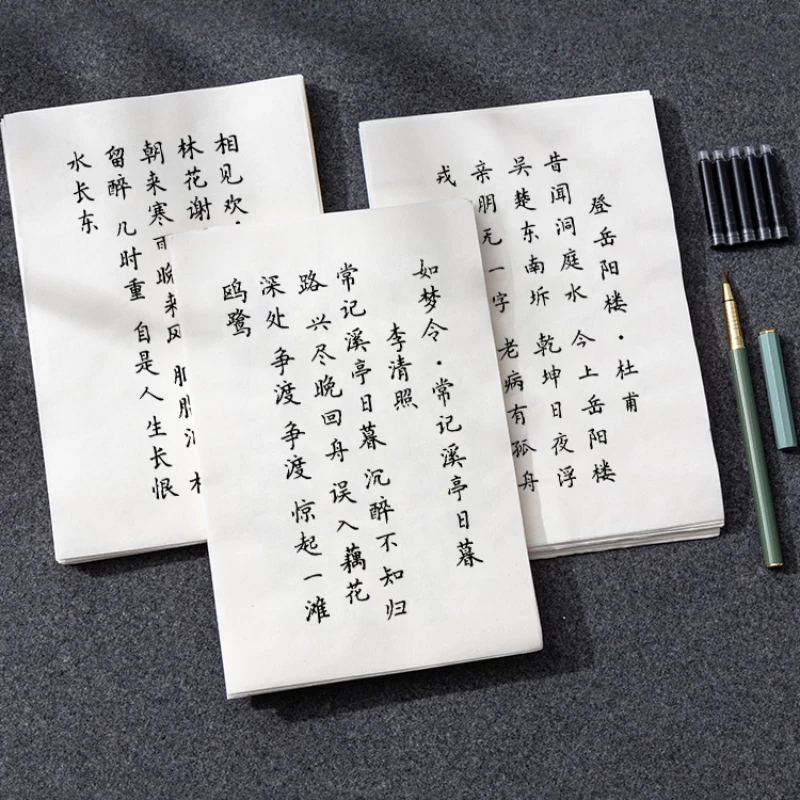 相见欢·
林花谢
朝来寒雨 晚来风
留醉 几时重 自是人生长恨
水长东
如梦令·常记溪亭日暮
李清照
常记溪亭日暮 沉醉不知归
路 兴尽晚回舟 误入藕花
深处 争渡 争渡 惊起一滩
鸥鹭
登岳阳楼·杜甫
昔闻洞庭水 今上岳阳楼
吴楚东南坼 乾坤日夜浮
亲朋无一字 老病有孤舟
戎